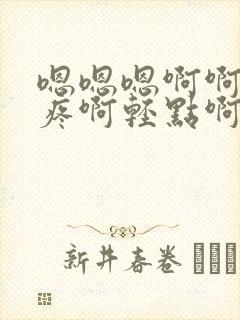 嗯嗯嗯啊啊
疼啊輕點啊
新井春卷